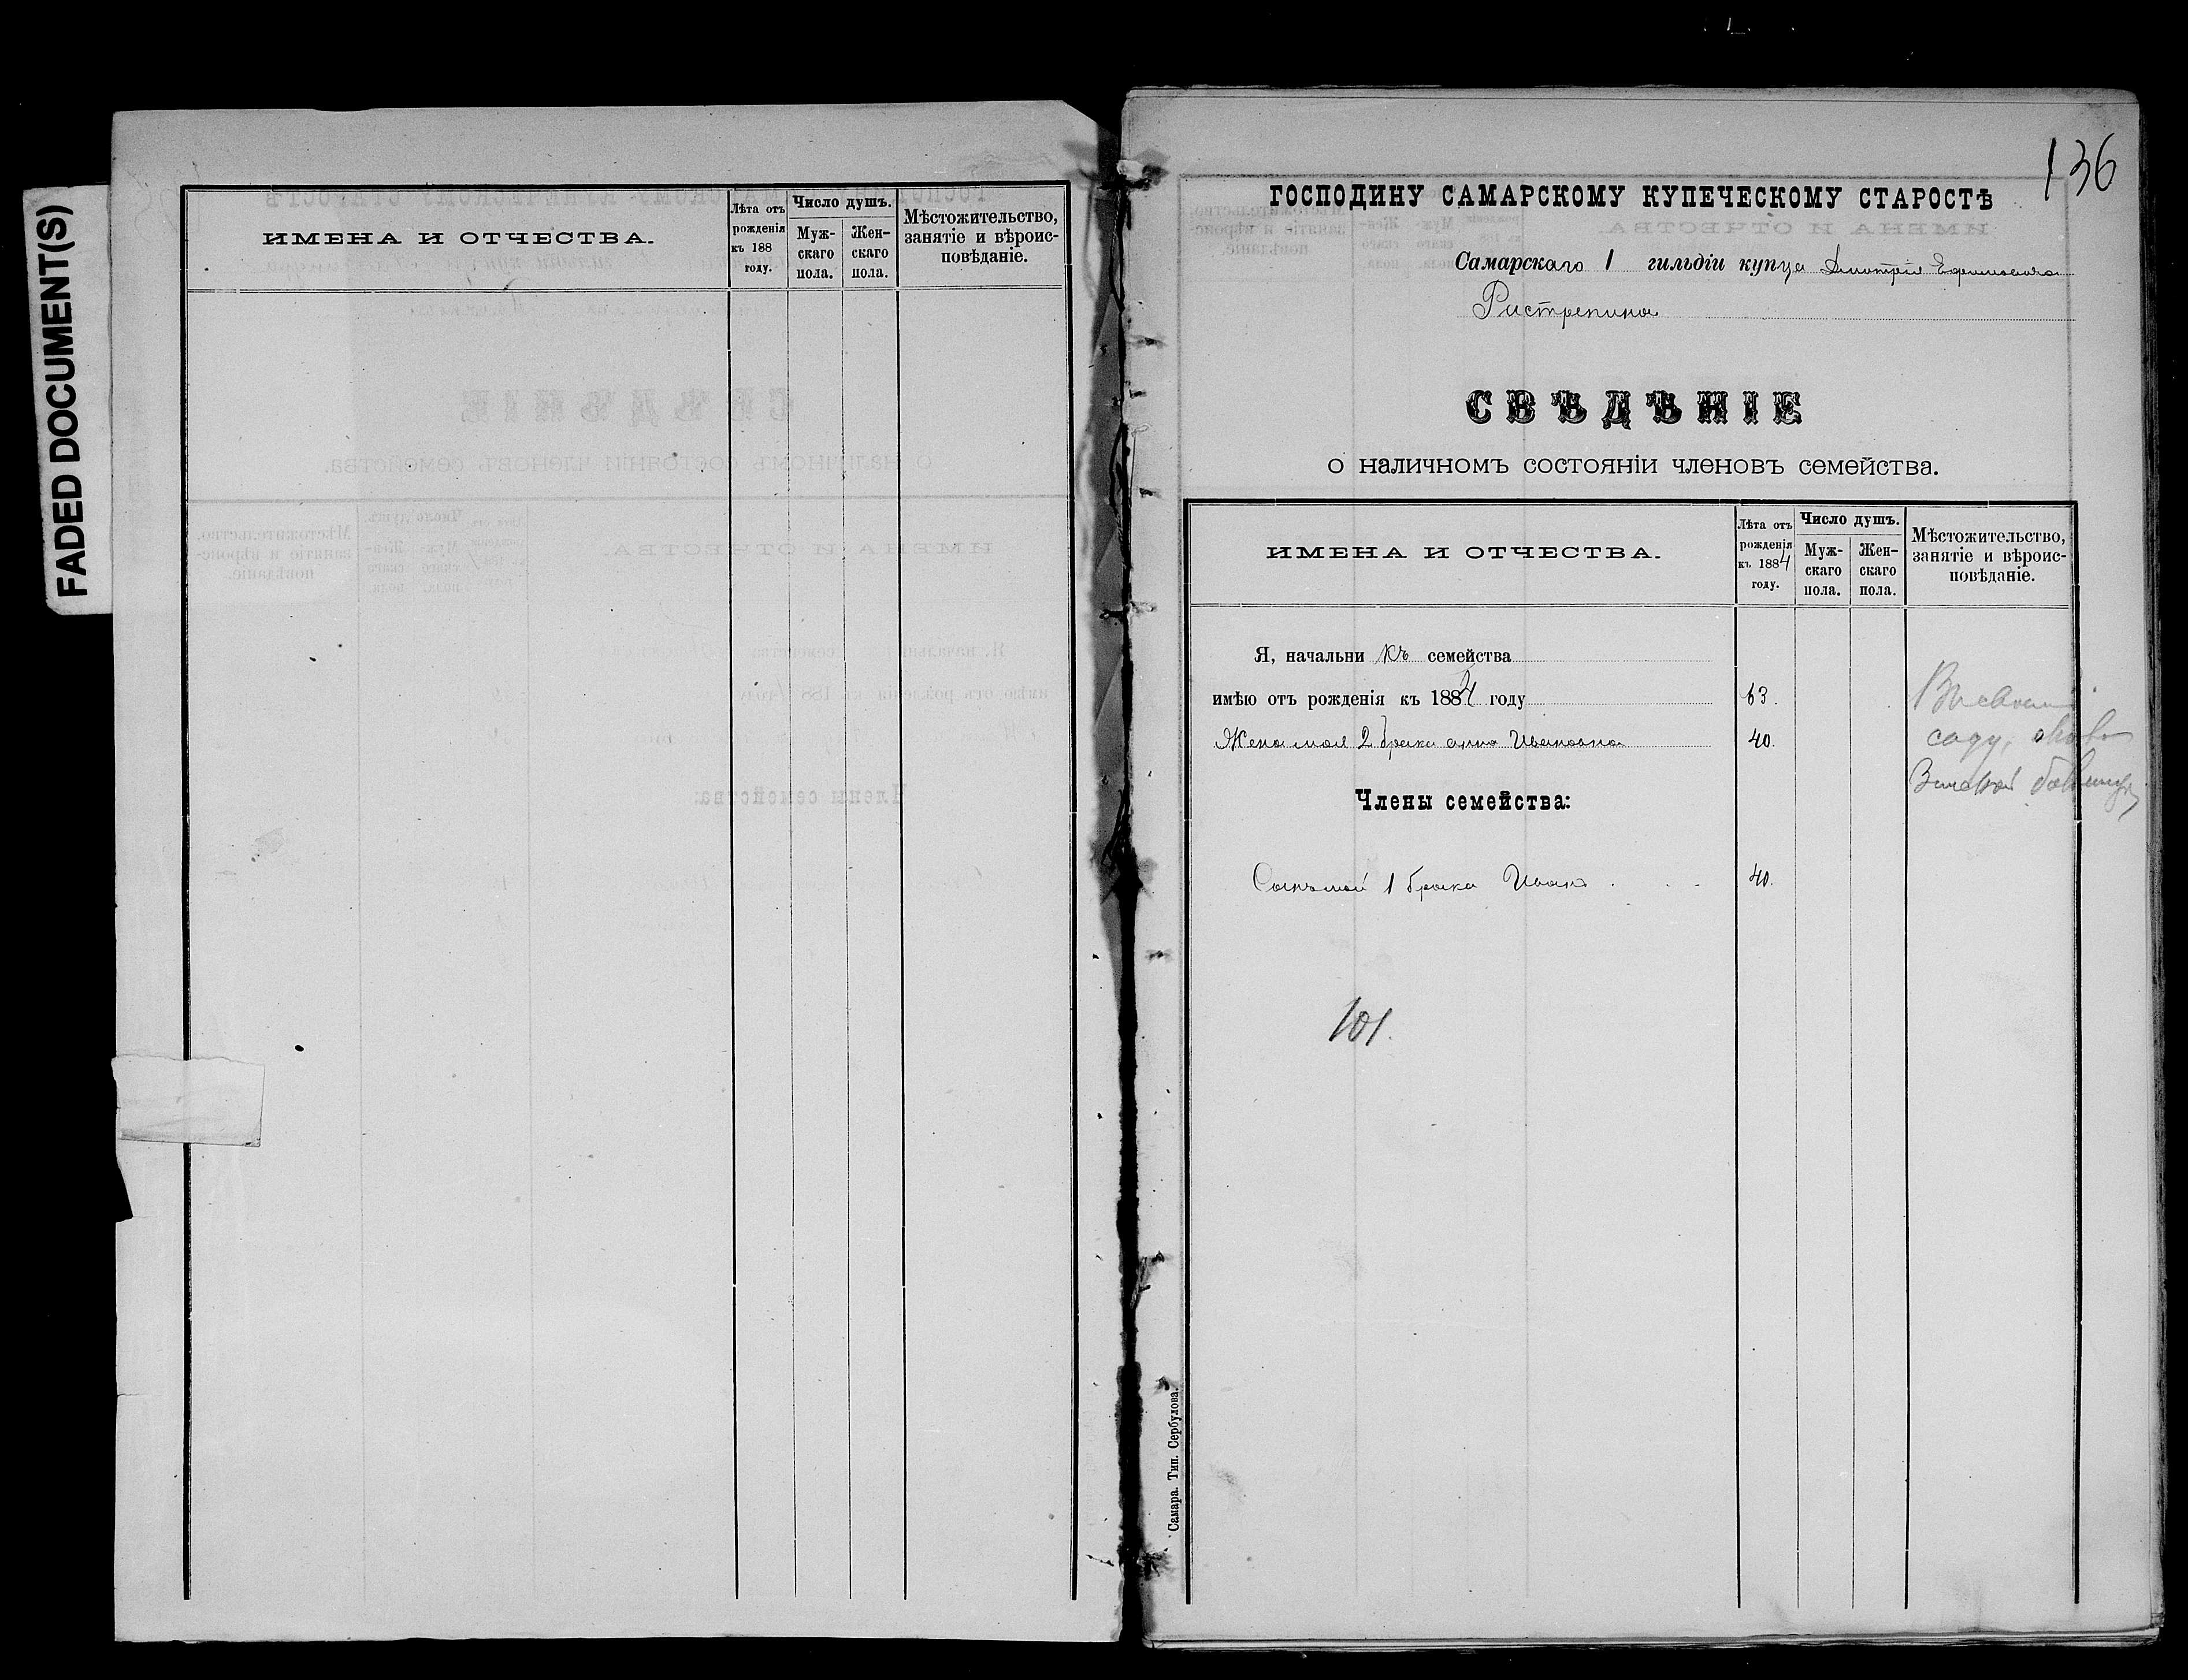 FADED DOCUMENT(S)
ИМЕНА И ОТЧЕСТВА.
Лѣта отъ рожденія къ 188 году.
Число душъ.
Муж-
скаго
пола.
Жен-
скаго
пола.
Мѣстожительство,
занятіе и вѣроис-
повѣданіе.
136
ГОСПОДИНУ САМАРСКОМУ КУПЕЧЕСКОМУ СТАРОСТѢ
Самарскаго 1 гильдіи купца Дмитрія Ефимовича
Растрепина
СВѢДѢНІЕ
о наличномъ состояніи членовъ семейства.
ИМЕНА И ОТЧЕСТВА.
Лѣта отъ
рожденія
къ 1884
году.
Число душъ.
Муж-
скаго
пола.
Жен-
скаго
пола.
Мѣстожительство,
занятіе и вѣроис-
повѣданіе.
Я, начальникъ семейства
имѣю отъ рожденія къ 1884 году 63.
Жена моя 2 брака Анна Ивановна 40.
саду,
Члены семейства:
Сынъ мой 1 брака Иванъ 40.
101.
Самара. Тип. Сербулова.